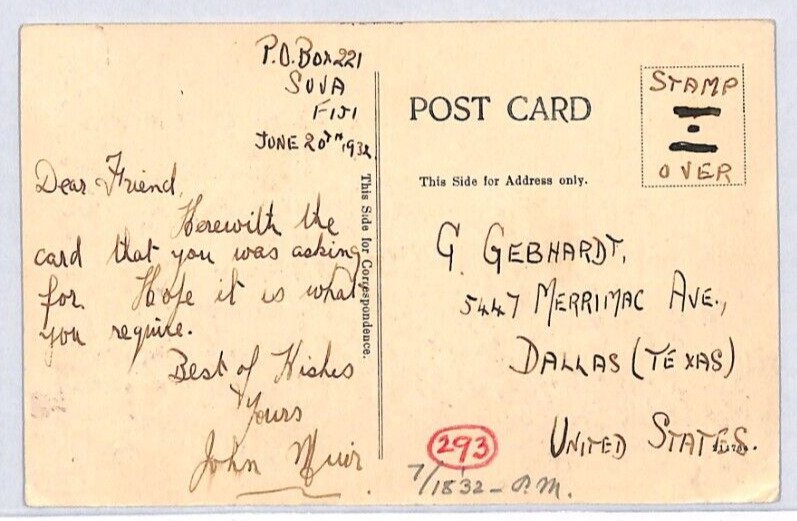 P.O. Box 221
SUVA
FIJI
JUNE 20TH, 1932
Dear Friend,
Herewith the
card that you was asking
for. Hope it is what
you require.
Best of Wishes
Yours
John Muir
This Side for Correspondence.
POST CARD
This Side for Address only.
STAMP
OVER
G. GEBHARDT,
5447 MERRIMAC AVE.,
DALLAS (TEXAS)
UNITED STATES.
293
7/18'32 - P.M.